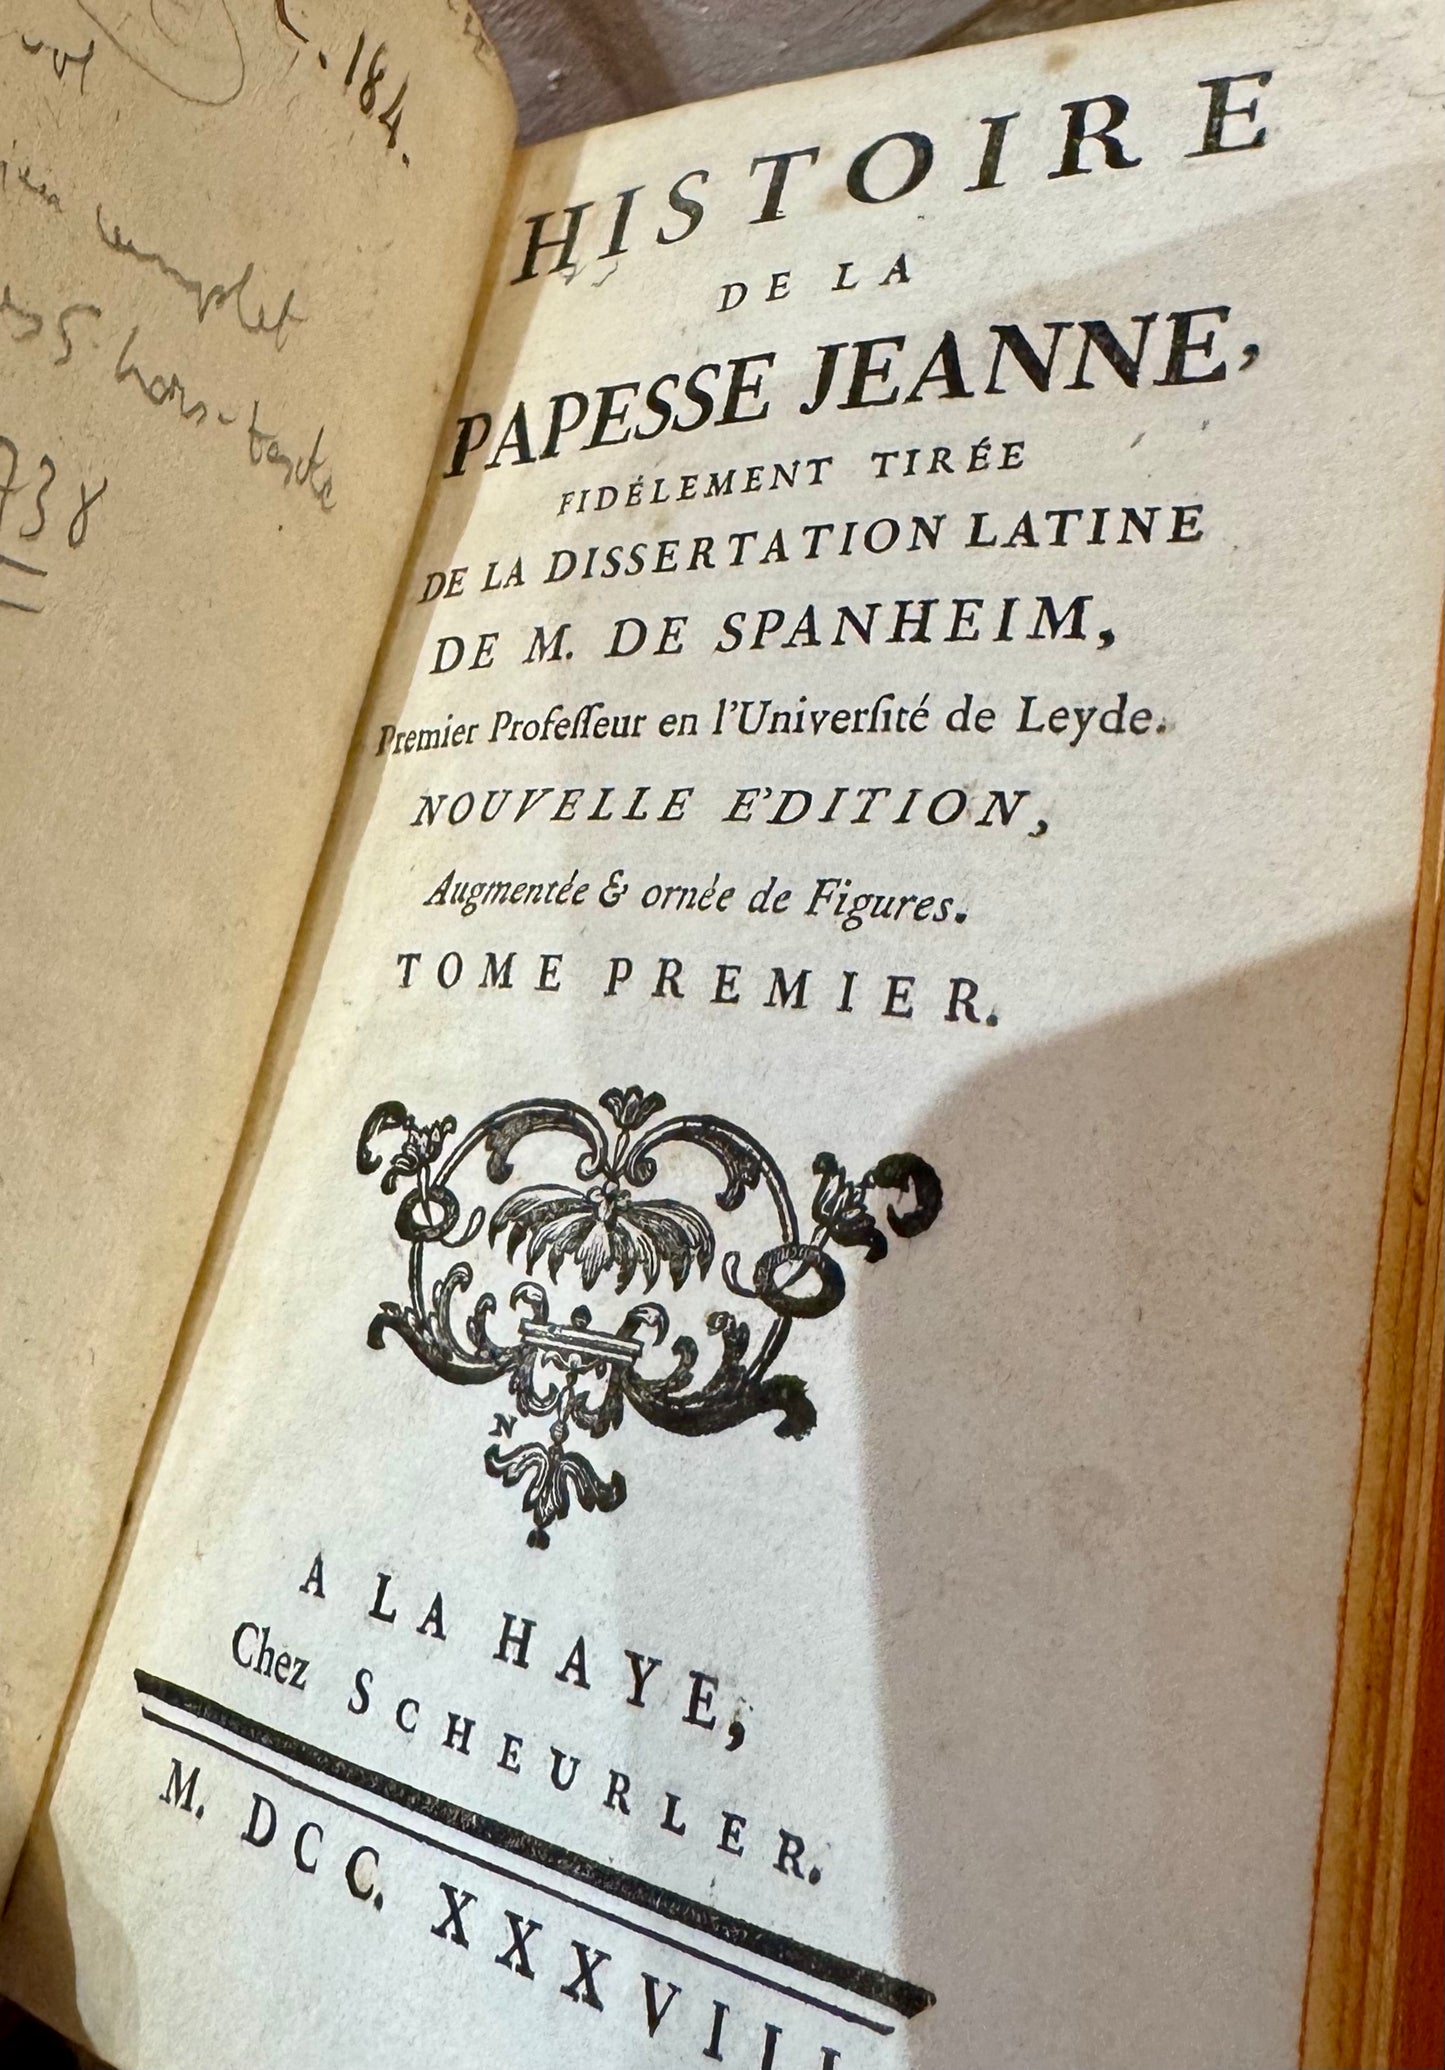 184.
complet
5 hors-texte
738
HISTOIRE
DE LA
PAPESSE JEANNE,
FIDÉLEMENT TIRÉE
DE LA DISSERTATION LATINE
DE M. DE SPANHEIM,
Premier Profeſſeur en l'Univerſité de Leyde.
NOUVELLE E'DITION,
Augmentée & ornée de Figures.
TOME PREMIER.
N
A LA HAYE,
Chez SCHEURLER.
M. DCC. XXXVIII